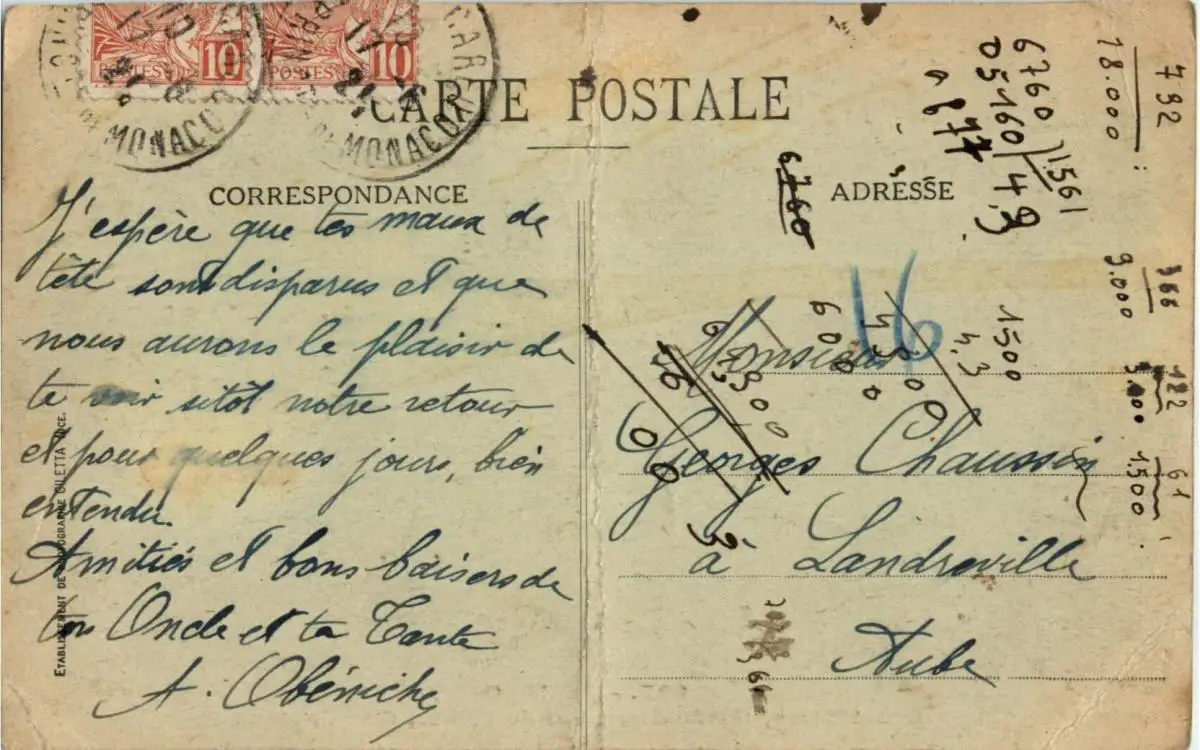 10
10
POSTES
POSTES
MONACO
MONACO
CARTE POSTALE
CORRESPONDANCE
J'espère que tes maux de
tête sont disparus et que
nous aurons le plaisir de
te voir sitôt notre retour
et pour quelques jours, bien
entendu.
Amitiés et bons baisers de
ton Oncle et ta Tante
A.
ADRESSE
Monsieur
Georges Chaussin
à Landreville
Aube
16
782
18.000
6760
05160
1561
43
77
6760
366
9.000
122
61
1500
1500
4,3
600
ETABLISSEMENT DE